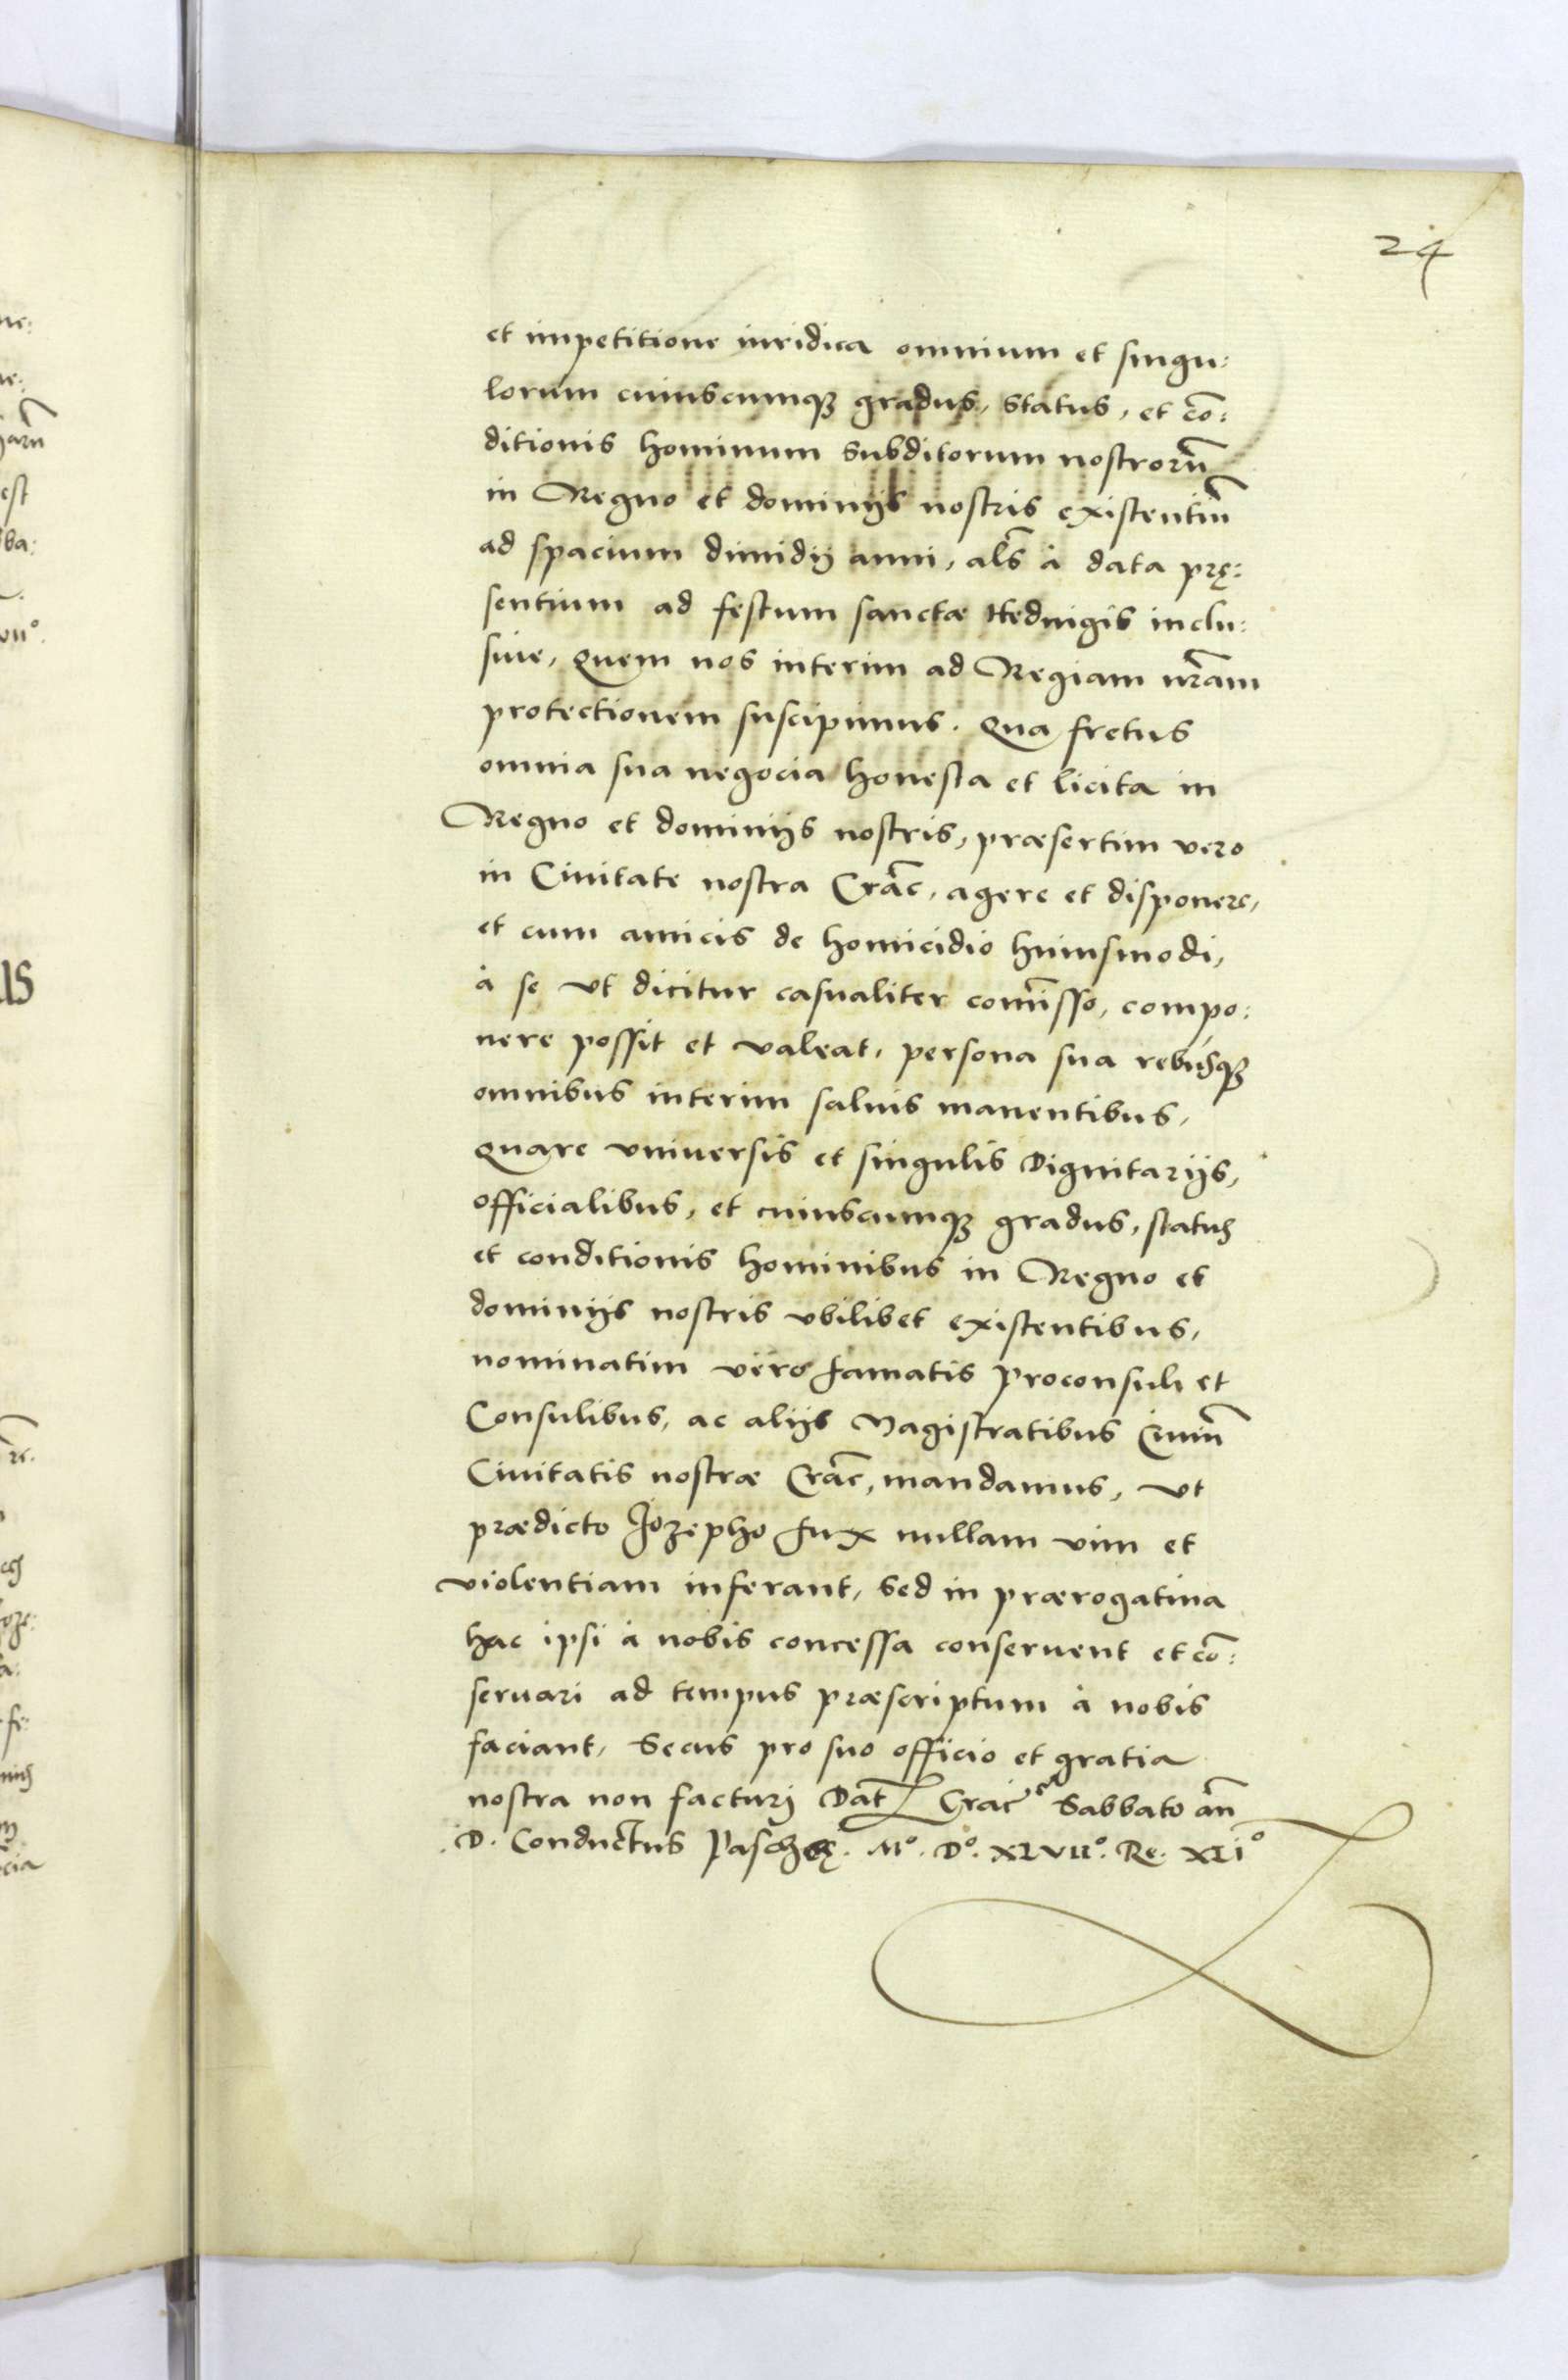 24
et impetitione iuridica omnium et singu:
lorum cuiuscumqꝫ gradus, status, et cō:
ditionis hominum subditorum nostrorū
in Regno et dominijs nostris existentiū
ad spacium dimidij anni, als̄ à data prę:
sentium ad festum sanctæ Heduigis inclu:
siue, quem nos interim ad Regiam nr̄am
protectionem suscipimus. Qua fretus
omnia sua negocia honesta et licita in
Regno et dominijs nostris, præsertim vero
in Ciuitate nostra Crac̄, agere et disponere,
et cum amicis de homicidio huiusmodi,
à se vt dicitur casualiter com̄isso, compo:
nere possit et valeat, persona sua rebusqꝫ
omnibus interim saluis manentibus,
quare vniuersis et singulis Dignitarijs,
officialibus, et cuiuscumqꝫ gradus, status
et conditionis hominibus in Regno et
dominijs nostris vbilibet existentibus,
nominatim vero famatis proconsuli et
Consulibus, ac alijs Magistratibus Ciuiū
Ciuitatis nostræ Crac̄, mandamus, vt
prædicto Jozepho Fux nullam vim et
violentiam inferant, sed in prærogatiua
hac ipsi à nobis concessa conseruent et cō:
seruari ad tempus præscriptum à nobis
faciant, secus pro suo officio et gratia
nostra non facturi Dat̄ Crac̄ Sabbato an̄
D. Conductus Paschę. Mº. Dº. XLVIIº. Re. XLIº